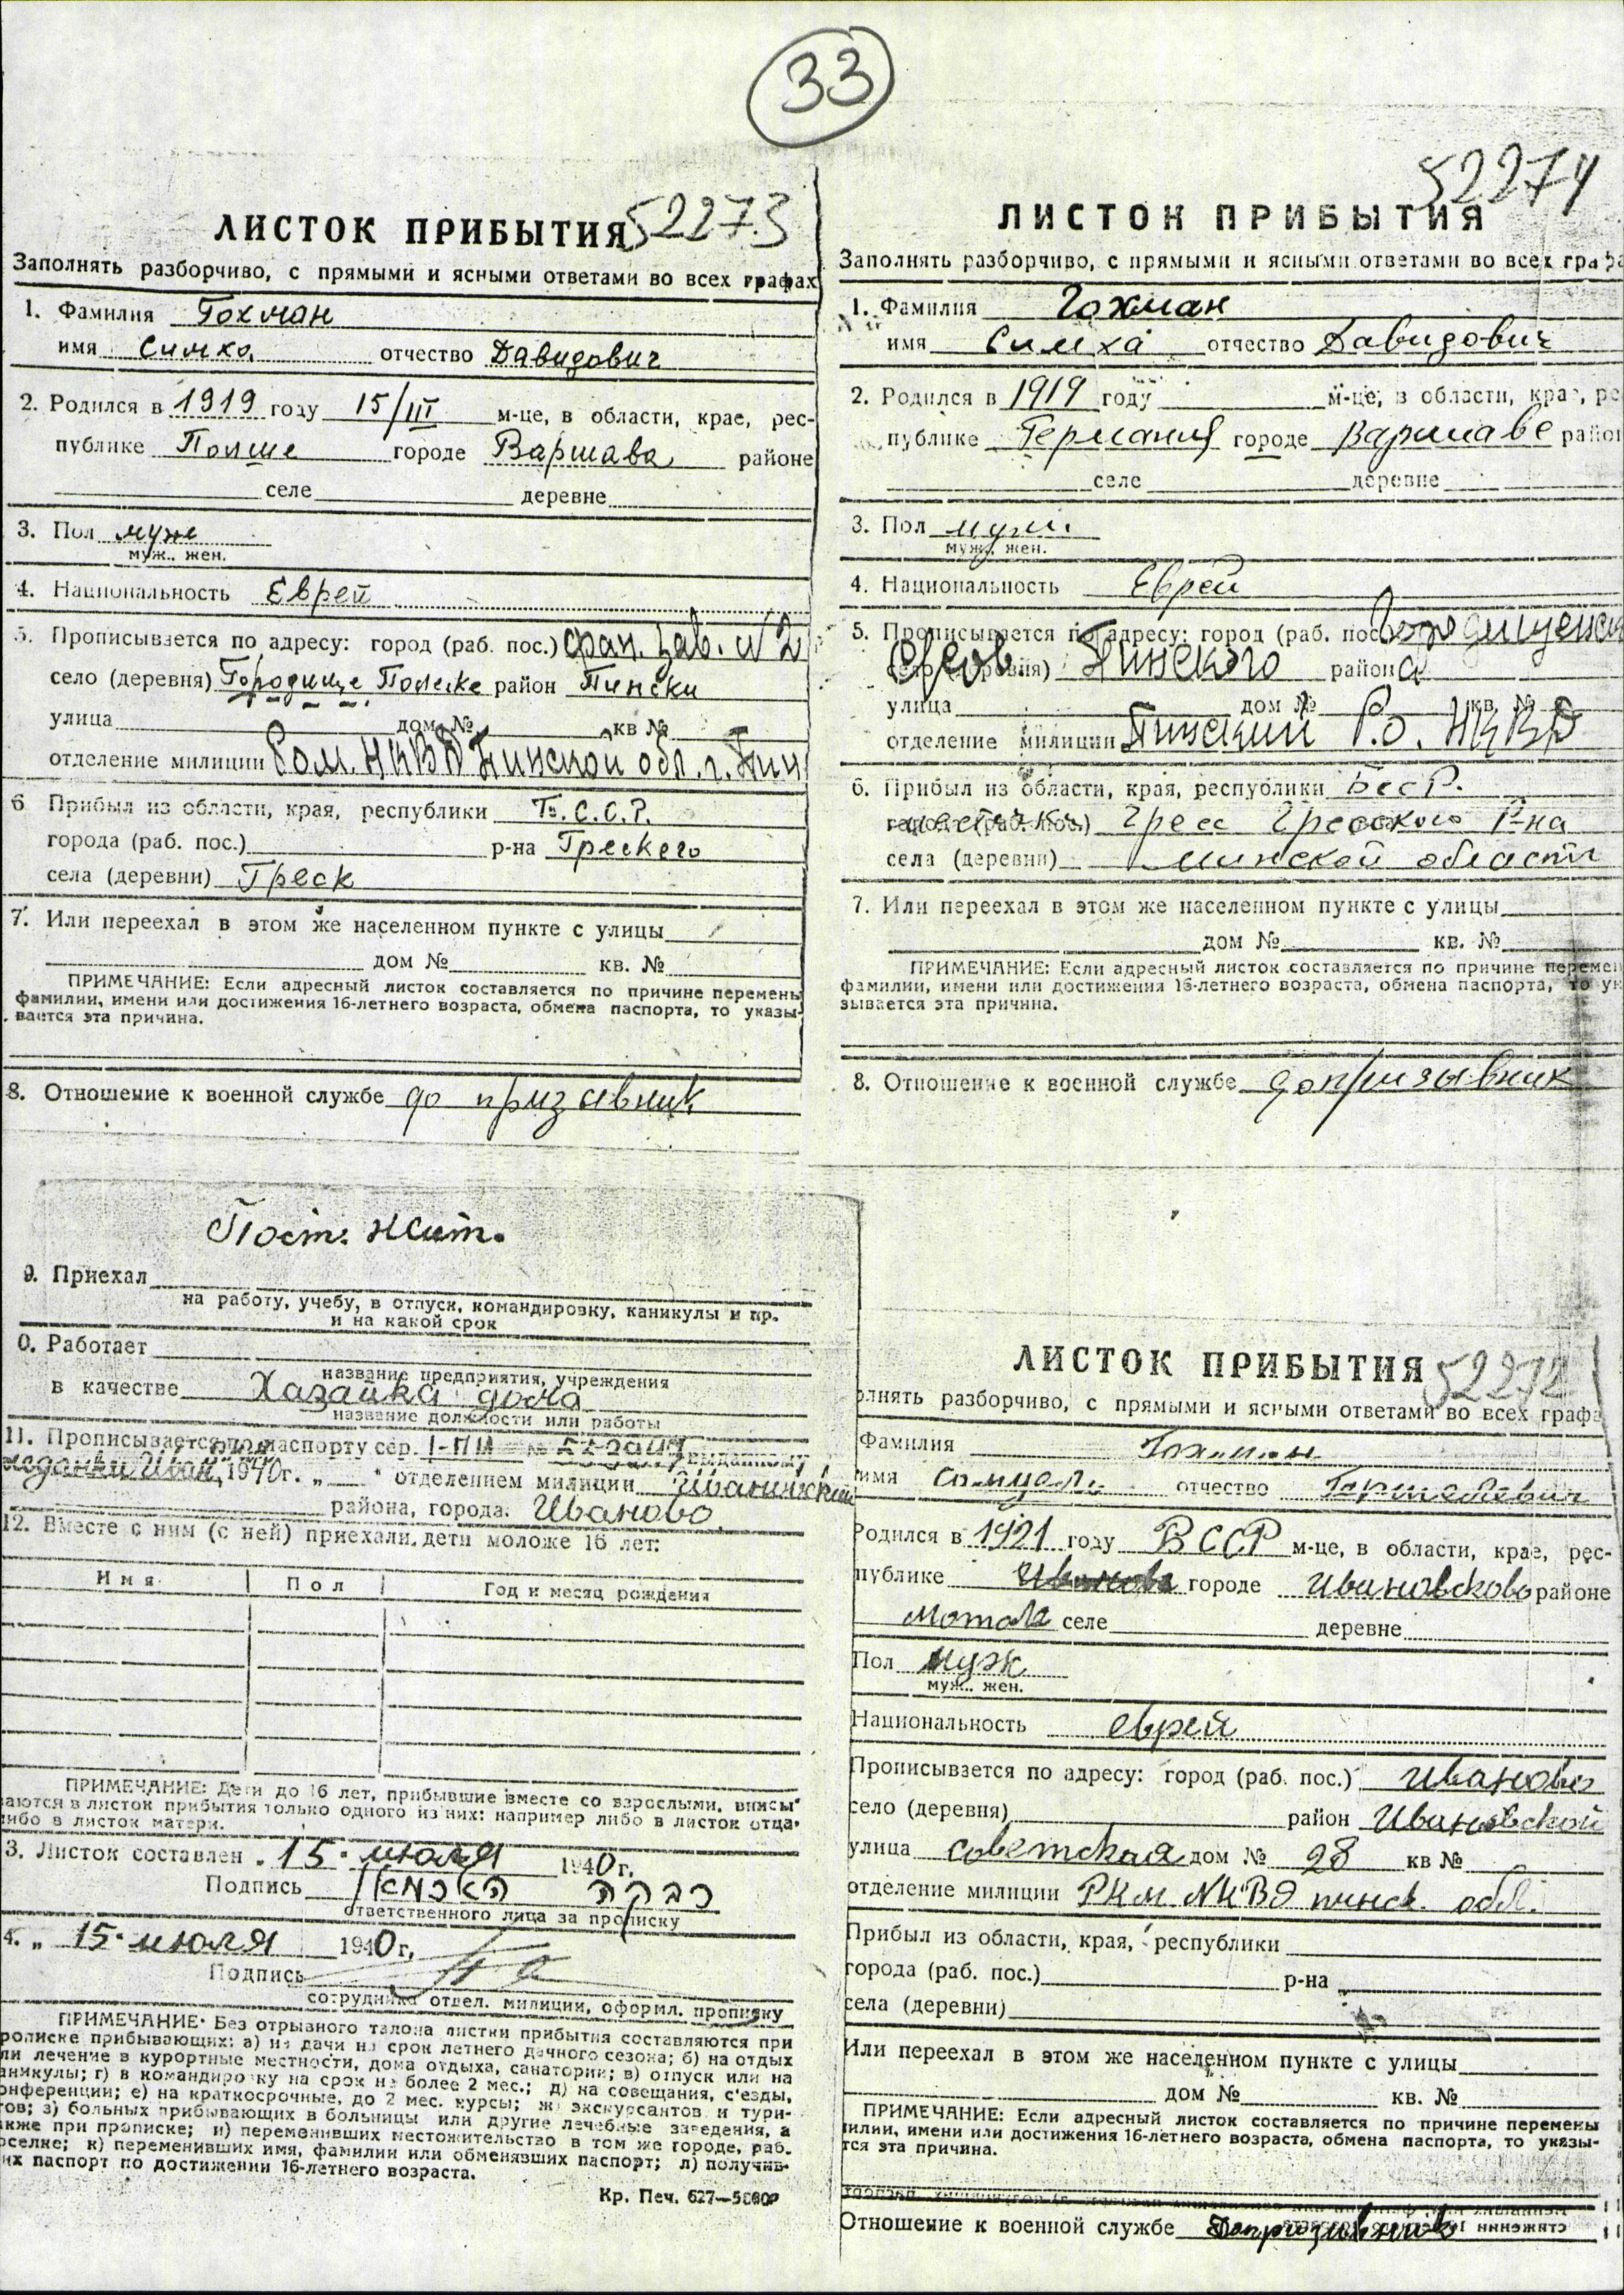 33
52273
ЛИСТОК ПРИБЫТИЯ
Заполнять разборчиво, с прямыми и ясными ответами во всех графах
1. Фамилия Гохман
имя Симха отчество Давидович
2. Родился в 1919 году 15/III м-це, в области, крае, рес-
публике Полше городе Варшава районе
селе деревне
3. Пол муж
муж.. жен.
4. Национальность Еврей
5. Прописывается по адресу: город (раб. пос.) фан. зав. №2
село (деревня) Городище Полеске район Пински
улица дом № кв №
отделение милиции Ром. НКВД Пинской обл. г. Пин
6 Прибыл из области, края, республики Б.С.С.Р.
города (раб. пос.) р-на Грескего
села (деревни) Греск
7. Или переехал в этом же населенном пункте с улицы
дом № кв. №
ПРИМЕЧАНИЕ: Если адресный листок составляется по причине перемены
фамилии, имени или достижения 16-летнего возраста, обмена паспорта, то указы-
вается эта причина.
8. Отношение к военной службе до призывник
52274
ЛИСТОК ПРИБЫТИЯ
Заполнять разборчиво, с прямыми и ясными ответами во всех графа
1. Фамилия Гохман
имя Симха отчество Давидович
2. Родился в 1919 году м-це, в области, крае, ре
публике Германия городе Варшаве район
селе деревне
3. Пол муж.
муж.. жен.
4. Национальность Еврей
5. Прописывается по адресу: город (раб. пос. Городищенск
Пинского района
улица дом № кв №
отделение милиции Пинский Р.О. НКВД
6. Прибыл из области, края, республики БССР.
местечка Греск Гресского Р-на
села (деревни) Минской области
7. Или переехал в этом же населенном пункте с улицы
дом № кв. №
ПРИМЕЧАНИЕ: Если адресный листок составляется по причине перемен
фамилии, имени или достижения 16-летнего возраста, обмена паспорта, то ук
зывается эта причина.
8. Отношение к военной службе допризывник
Пост. жит.
9. Приехал
на работу, учебу, в отпуск, командировку, каникулы и пр.
и на какой срок
0. Работает
название предприятия, учреждения
в качестве Хазайка дома
название должности или работы
11. Прописывается по паспорту сер. I-ПИ № выданному
1940г. „ " отделением милиции
района, города. Иваново
12. Вместе с ним (с ней) приехали дети моложе 16 лет:
Имя Пол Год и месяц рождения
ПРИМЕЧАНИЕ: Дети до 16 лет, прибывшие вместе со взрослыми, вписы-
ваются в листок прибытия только одного из них: например либо в листок отца,
либо в листок матери.
3. Листок составлен . 15. июля 1940г.
Подпись רבקה
ответственного лица за прописку
4. „ 15. июля 1940г.
Подпись
сотрудника отдел. милиции, оформл. прописку
ПРИМЕЧАНИЕ. Без отрывного талона листки прибытия составляются при
рописке прибывающих: а) на дачи на срок летнего дачного сезона; б) на отдых
ли лечение в курортные местности, дома отдыха, санатории; в) отпуск или на
аникулы; г) в командировку на срок не более 2 мес.; д) на совещания, с'езды,
онференции; е) на краткосрочные, до 2 мес. курсы; ж) экскурсантов и тури-
тов; з) больных прибывающих в больницы или другие лечебные заведения, а
кже при прописке; и) переменивших местожительство в том же городе, раб.
оселке; к) переменивших имя, фамилии или обменявших паспорт; л) получив-
их паспорт по достижении 16-летнего возраста.
Кр. Печ. 627—5000
52272
ЛИСТОК ПРИБЫТИЯ
олнять разборчиво, с прямыми и ясными ответами во всех графа
Фамилия Гохман
имя Самуель отчество Гершелевич
Родился в 1921 году БССР м-це, в области, крае, рес-
публике городе Ивановсково районе
Мотоль селе деревне
Пол муж
муж.. жен.
Национальность еврей
Прописывается по адресу: город (раб. пос.) Иваново
село (деревня) район Ивановской
улица советская дом № 28 кв №
отделение милиции РКМ НКВД пинск. обл.
Прибыл из области, края, республики
города (раб. пос.) р-на
села (деревни)
Или переехал в этом же населенном пункте с улицы
дом № кв. №
ПРИМЕЧАНИЕ: Если адресный листок составляется по причине перемены
милии, имени или достижения 16-летнего возраста, обмена паспорта, то указы-
тся эта причина.
Отношение к военной службе Допризивник